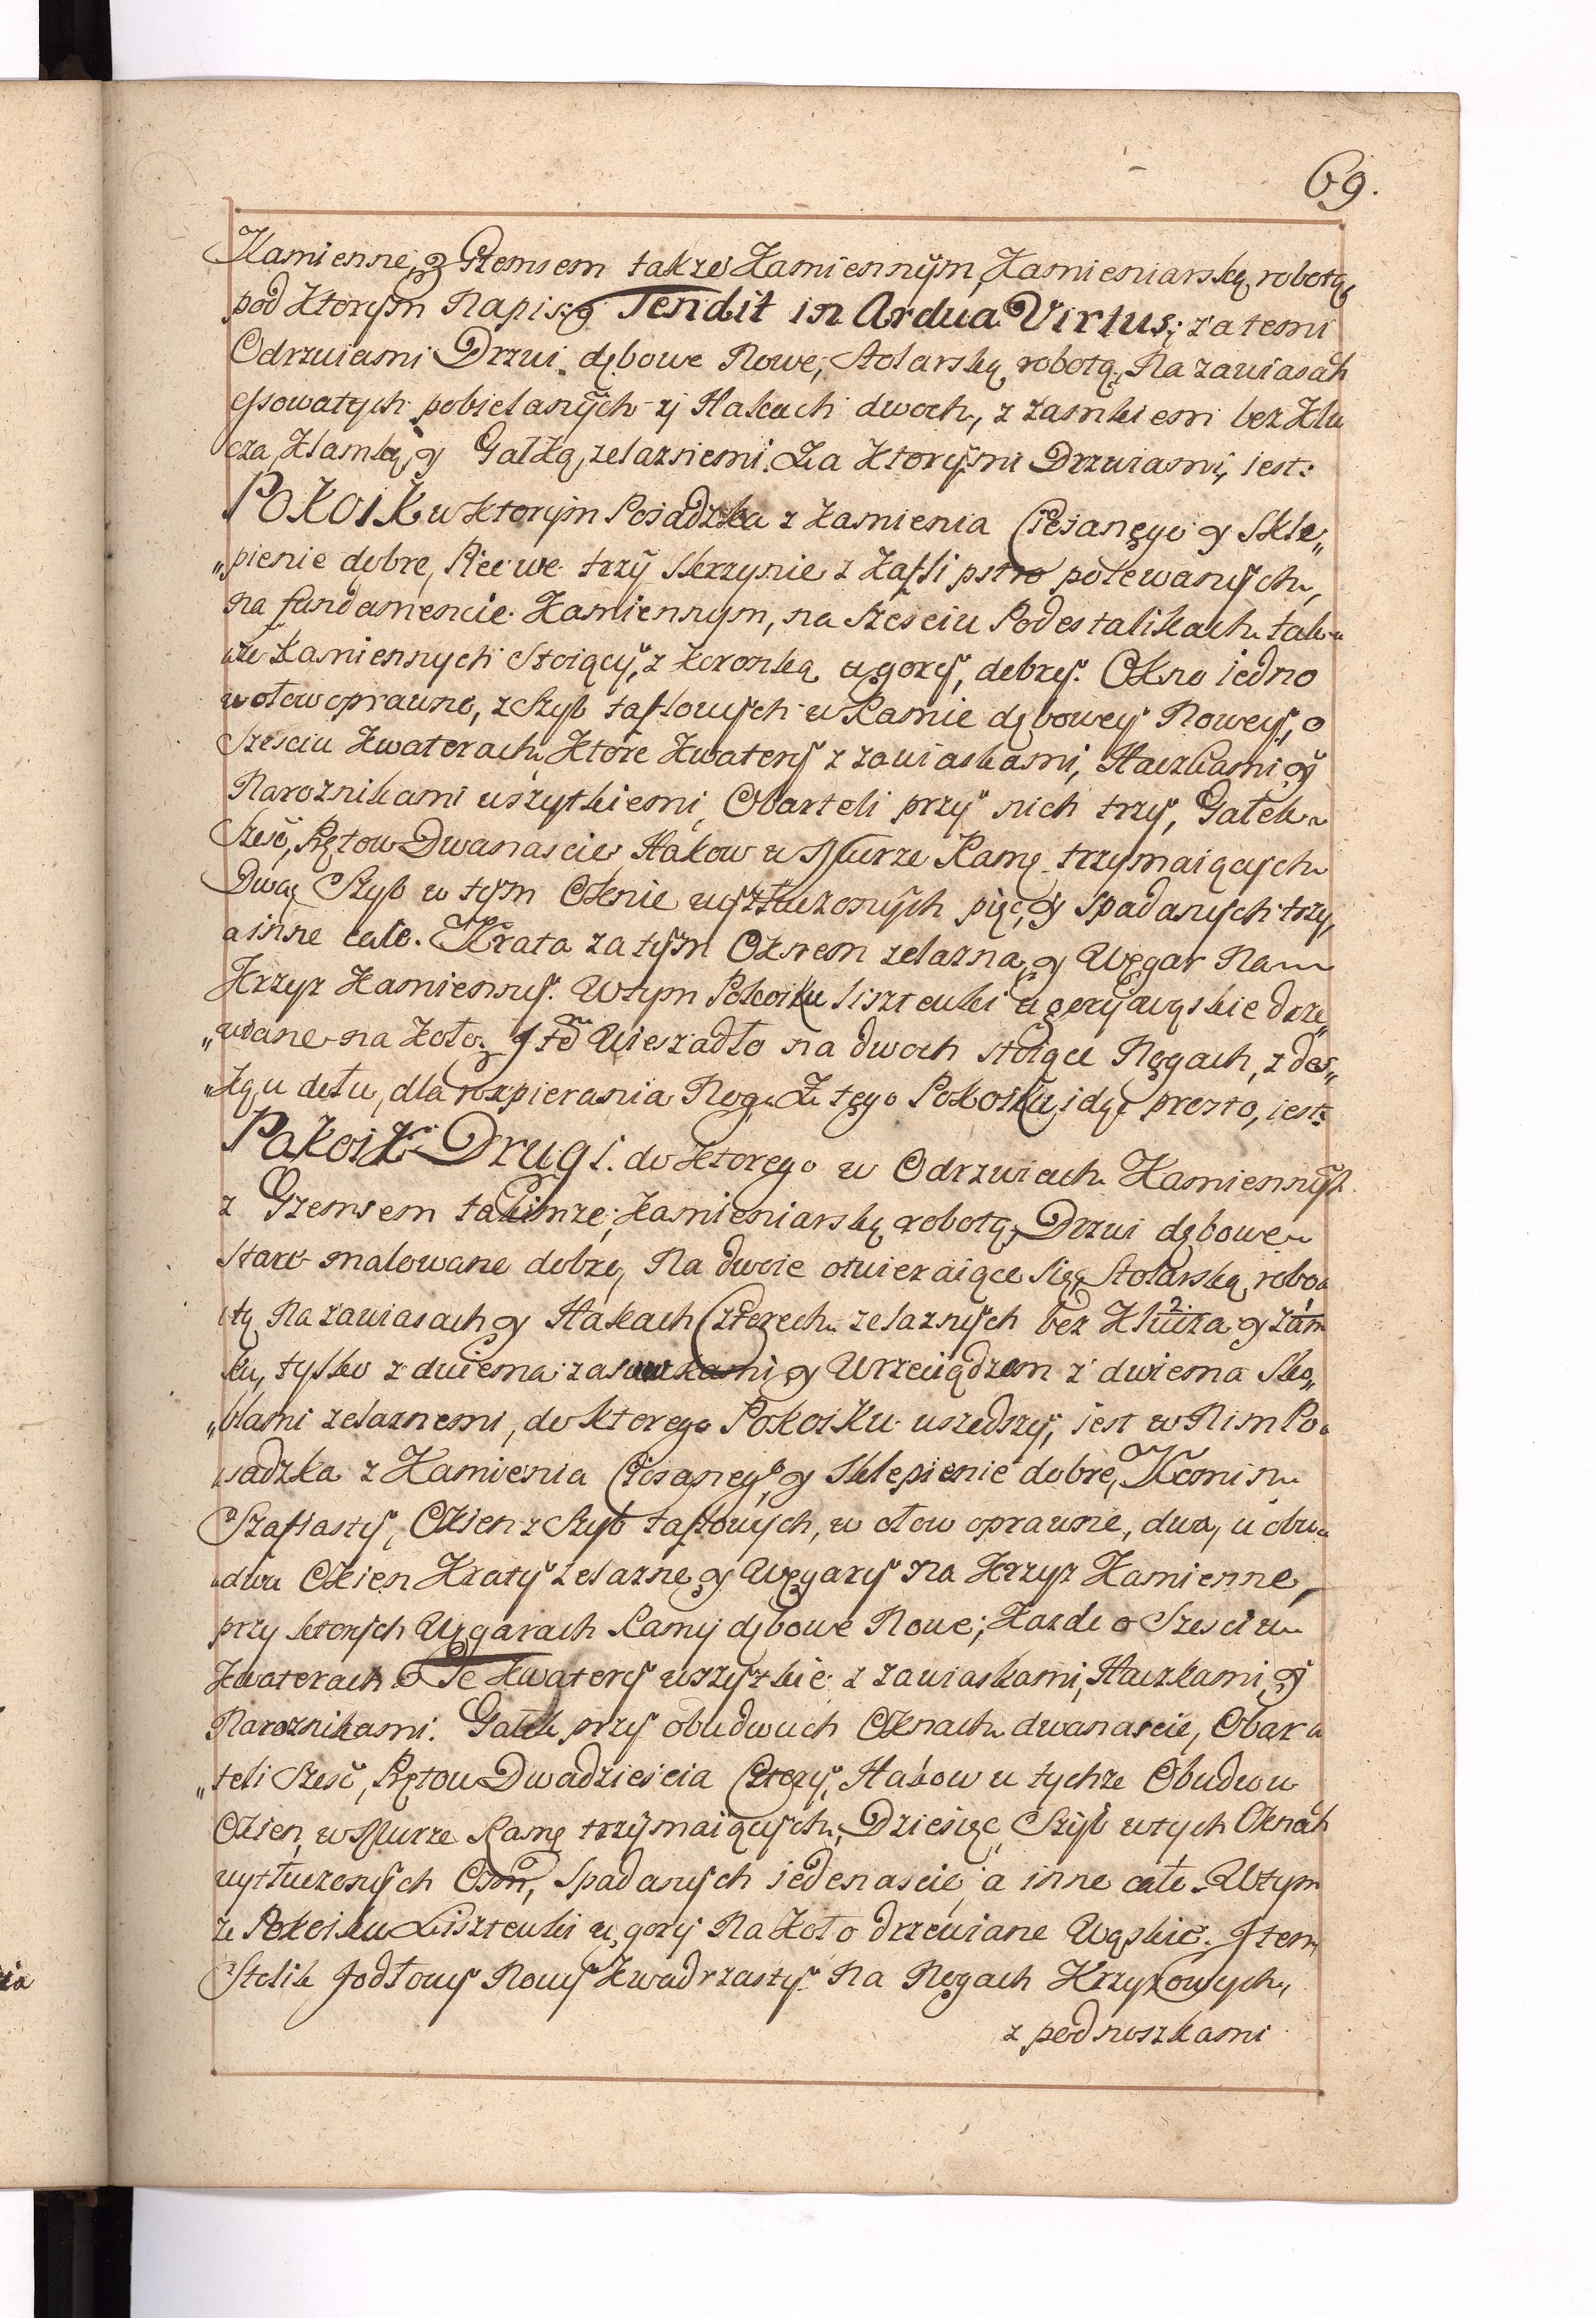 69.
Kamienne, z Gzemsem także Kamiennym, Kamieniarską robotą,
pod ktorym Napis: Tendit in Ardua Virtus; za temi
Odrzwiami Drzwi dębowe Nowe, Stolarską robotą, Na zawiasach
essowatych pobielanych y Hakach dwoch, z zamkiem bez Klu
cza, Klamką, y Gałką, zelaznemi. Za ktorymi Drzwiami, iest:
POKOIK w ktorym Posadzka z kamienia Ciosanego y Skle„
„pienie dobre, Piec we trzy Skrzynie z kafli pstro polewanych,
na fundamencie Kamiennym, na Sześciu Podestalikach tak„
„że kamiennych Stoiący, z koronką u gory, dobry. Okno iedno
w ołow oprawne, z Szyb taflowych w Ramie dębowey Nowey, o
Sześciu kwaterach, Ktore kwatery z zawiaskami, Haczkami y
Naroznikami wszytkiemi, Obarteli przy nich trzy, Gałek
Sześć, Prętow Dwanascie, Hakow w Murze Ramę trzymaiących
Dwa, Szyb w tym Oknie wytłuczonych pięć, y spadanych trzy,
a inne całe. Krata za tym Oknem zelazna, y Węgar Na
Krzyz kamienny. W tym Pokoiku Lisztewki u gory wąskie drze„
„wiane na koło, Itm Wieszadło na dwoch stoiące Nogach, z des„
„ką u dołu, dla rozpierania Nog. Z tego Pokoiku idąc prosto, iest:
POKOIK DRUGI. do ktorego w Odrzwiach Kamiennych
z Gzemsem takimze, kamieniarską robotą, Drzwi dębowe
Stare malowane dobre, Na dwoie otwieraiące Się, Stolarską robo„
„tą Na zawiasach y Hakach Czterech zelaznych bez Klucza y zam
ku, tylko z dwiema zasuwkami y Wrzeciądzem z dwiema Sko„
„blami zelaznemi, do ktorego Pokoiku wszedszy, iest w Nim Po„
„sadzka z Kamienia Ciosanego, y Sklepienie dobre, Komin
Szafiasty, Okien z Szyb taflowych, w ołow oprawne, dwa, u obu„
„dwu Okien Kraty zelazne y Węgary Na Krzyz Kamienne,
przy ktorych Węgarach Ramy dębowe Nowe, Kazde o Sześciu
kwaterach Te kwatery wszyskie z zawiaskami, Haczkami, y
Naroznikami. Gałek przy obudwuch Oknach dwanascie, Obar„
„teli Sześć, Prętow Dwadzieścia Cztery, Hakow u tychze Obudwu
Okien, w Murze Ramę trzymaiących, Dziesięć, Szyb w tych Oknach
wytłuczonych Osm, Spadanych iedenascie, a inne całe. W tym
że Pokoiku Lisztewki u gory Na koło drzewiane Wąskie. Item
Stolik Jodłowy Nowy Kwadrzasty Na Nogach Krzyzowych,
z podnoszkami